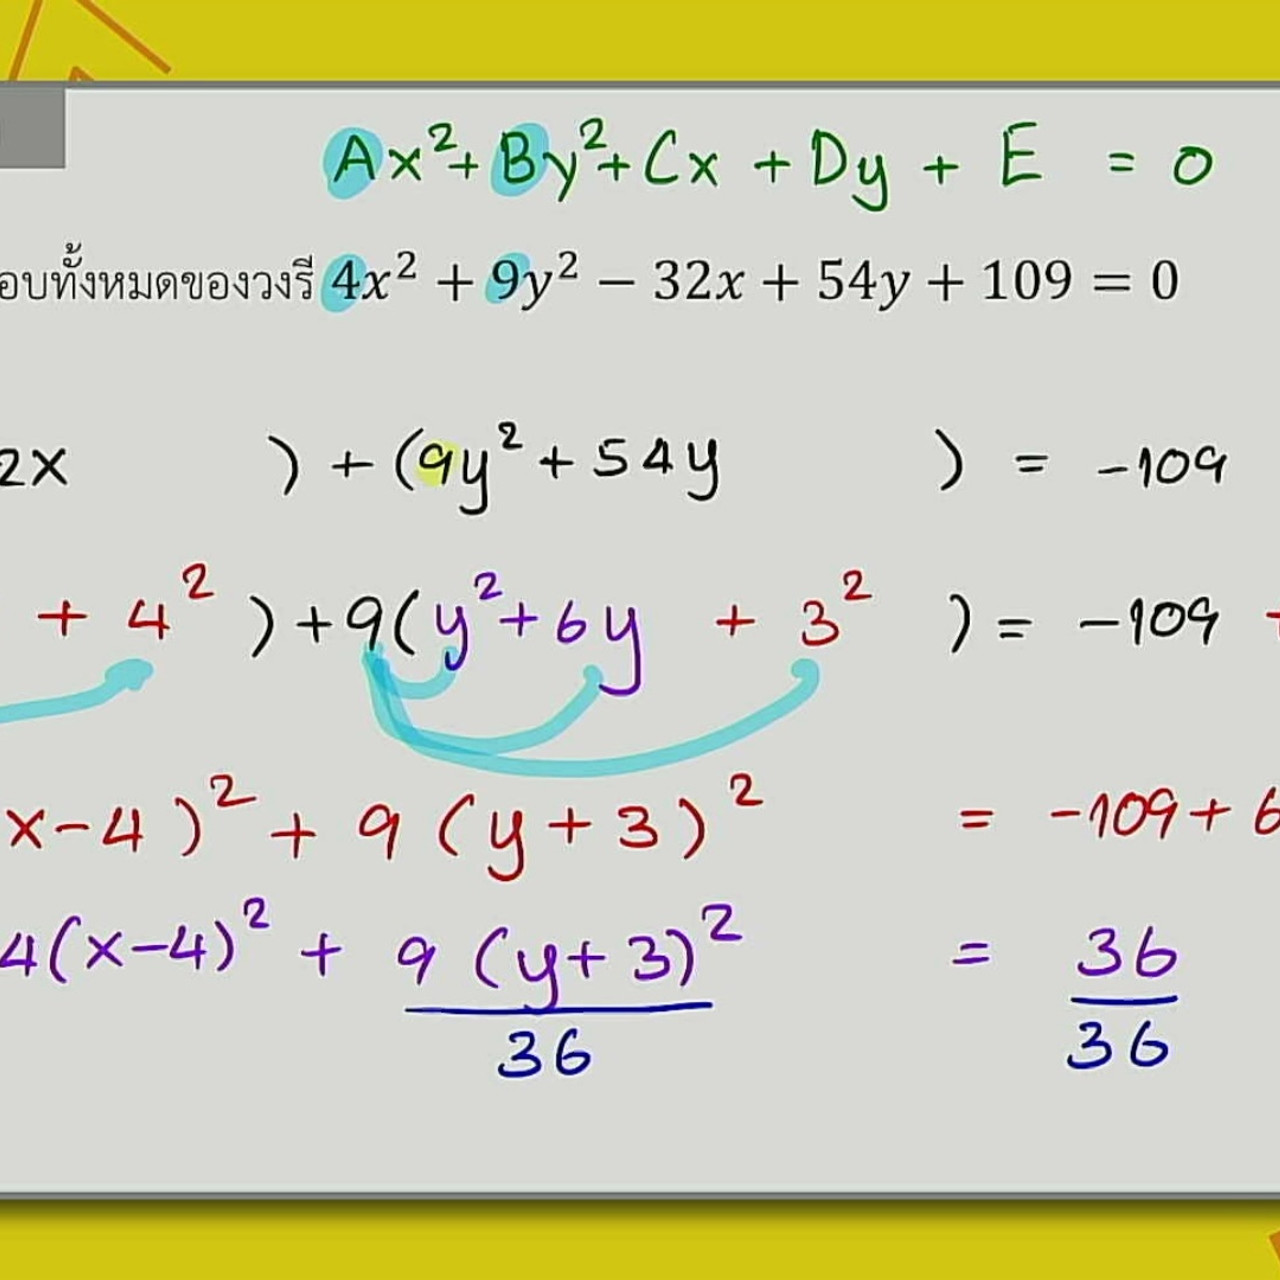 Ax²+By²+Cx + Dy + E = 0
อบทั้งหมดของวงรี 4x² + 9y² − 32x + 54y + 109 = 0
2x ) + (9y² + 54y ) = -109
+ 4² ) + 9(y² + 6y + 3² ) = -109 +
x-4)² + 9 (y+3)² = -109 + 6
4(x-4)² + 9 (y+3)² = 36
36 36